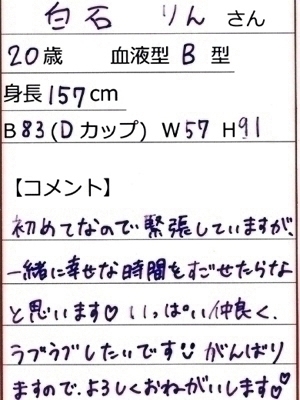 白石 りん さん
20歳 血液型 B 型
身長157cm
B 83(Dカップ) W57 H91
【コメント】
初めてなので緊張していますが、
一緒に幸せな時間をすごせたらな
と思います♡ いっぱい仲良く、
ラブラブしたいです☺ がんばり
ますので、よろしくおねがいします♡♡